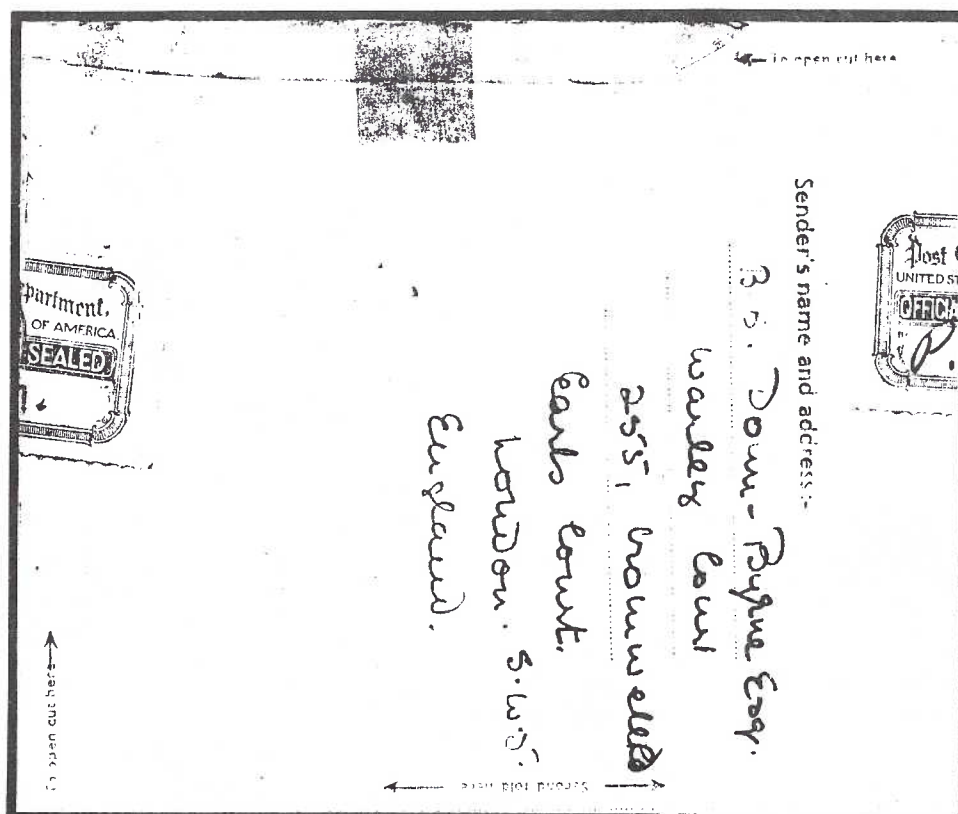 To open cut here
Sender's name and address:-
B. J. Donn-Byrne Esq.
Warley Court
255, Cromwell Rd
Earls Court.
London. S.W.5.
England.
Post O
UNITED ST
OFFICIA
partment,
OF AMERICA
SEALED
Second fold here
To open cut here